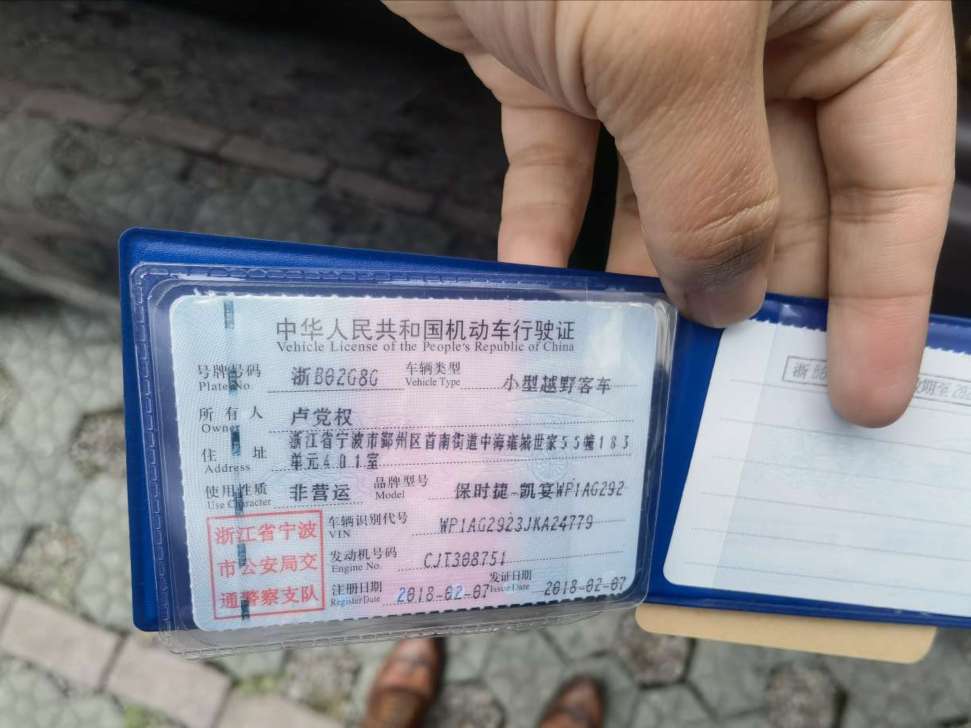 中华人民共和国机动车行驶证
Vehicle License of the People's Republic of China
号牌号码 浙B02G8G 车辆类型 小型越野客车
Plate No. Vehicle Type
所有人 卢党权
Owner
住址 浙江省宁波市鄞州区首南街道中海雍城世家55幢183
单元401室
Address
使用性质 非营运 品牌型号 保时捷-凯宴WP1AG292
Use Character Model
浙江省宁波
市公安局交
通警察支队
车辆识别代号 WP1AG2923JKA24779
VIN
发动机号码 CJT308751
Engine No.
注册日期 2018-02-07 发证日期 2018-02-07
Register Date Issue Date
浙
期至20